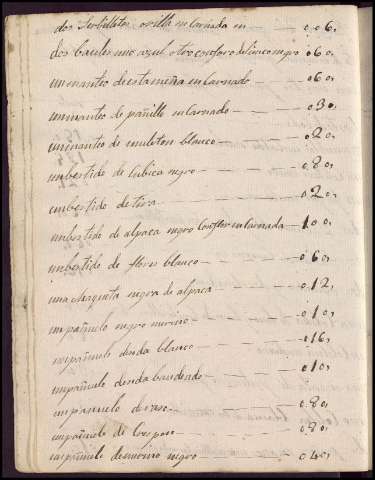 dos Serbilletas orilla encarnada en — 0.06.
dos baules uno azul otro conforo deliensonegro 060,
un manteo de estameña encarnado — 060,
un manteo de pañillo encarnado — 030,
un manteo de muleton blanco — 020,
un bestido de Cubica negro — 080,
un bestido de tira — 020,
un bestido de alpaca negro Conflor encarnada — 100,
un bestido de flores blanco — 060,
una chaqueta negra de alpaca — 012,
un pañuelo negro merino — 010,
un pañuelo denda blanco — 016,
un pañuelo denda bandeado — 010,
un panuelo deraso — 080,
un pañuelo de Crespon — 080,
un pañuelo demerino negro — 040,